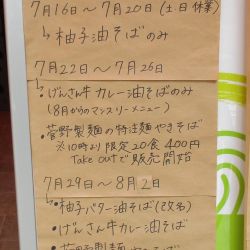 7月16日～7月20日(土日休業)
↳柚子油そばのみ
7月22日～7月26日
・げんさん牛カレー油そばのみ
(8月からのマンスリーメニュー)
・菅野製麺の特注麺やきそば
※10時より限定20食400円
Take outで販売開始
7月29日～8月2日
・柚子バター油そば(改名)
・げんさん牛カレー油そば